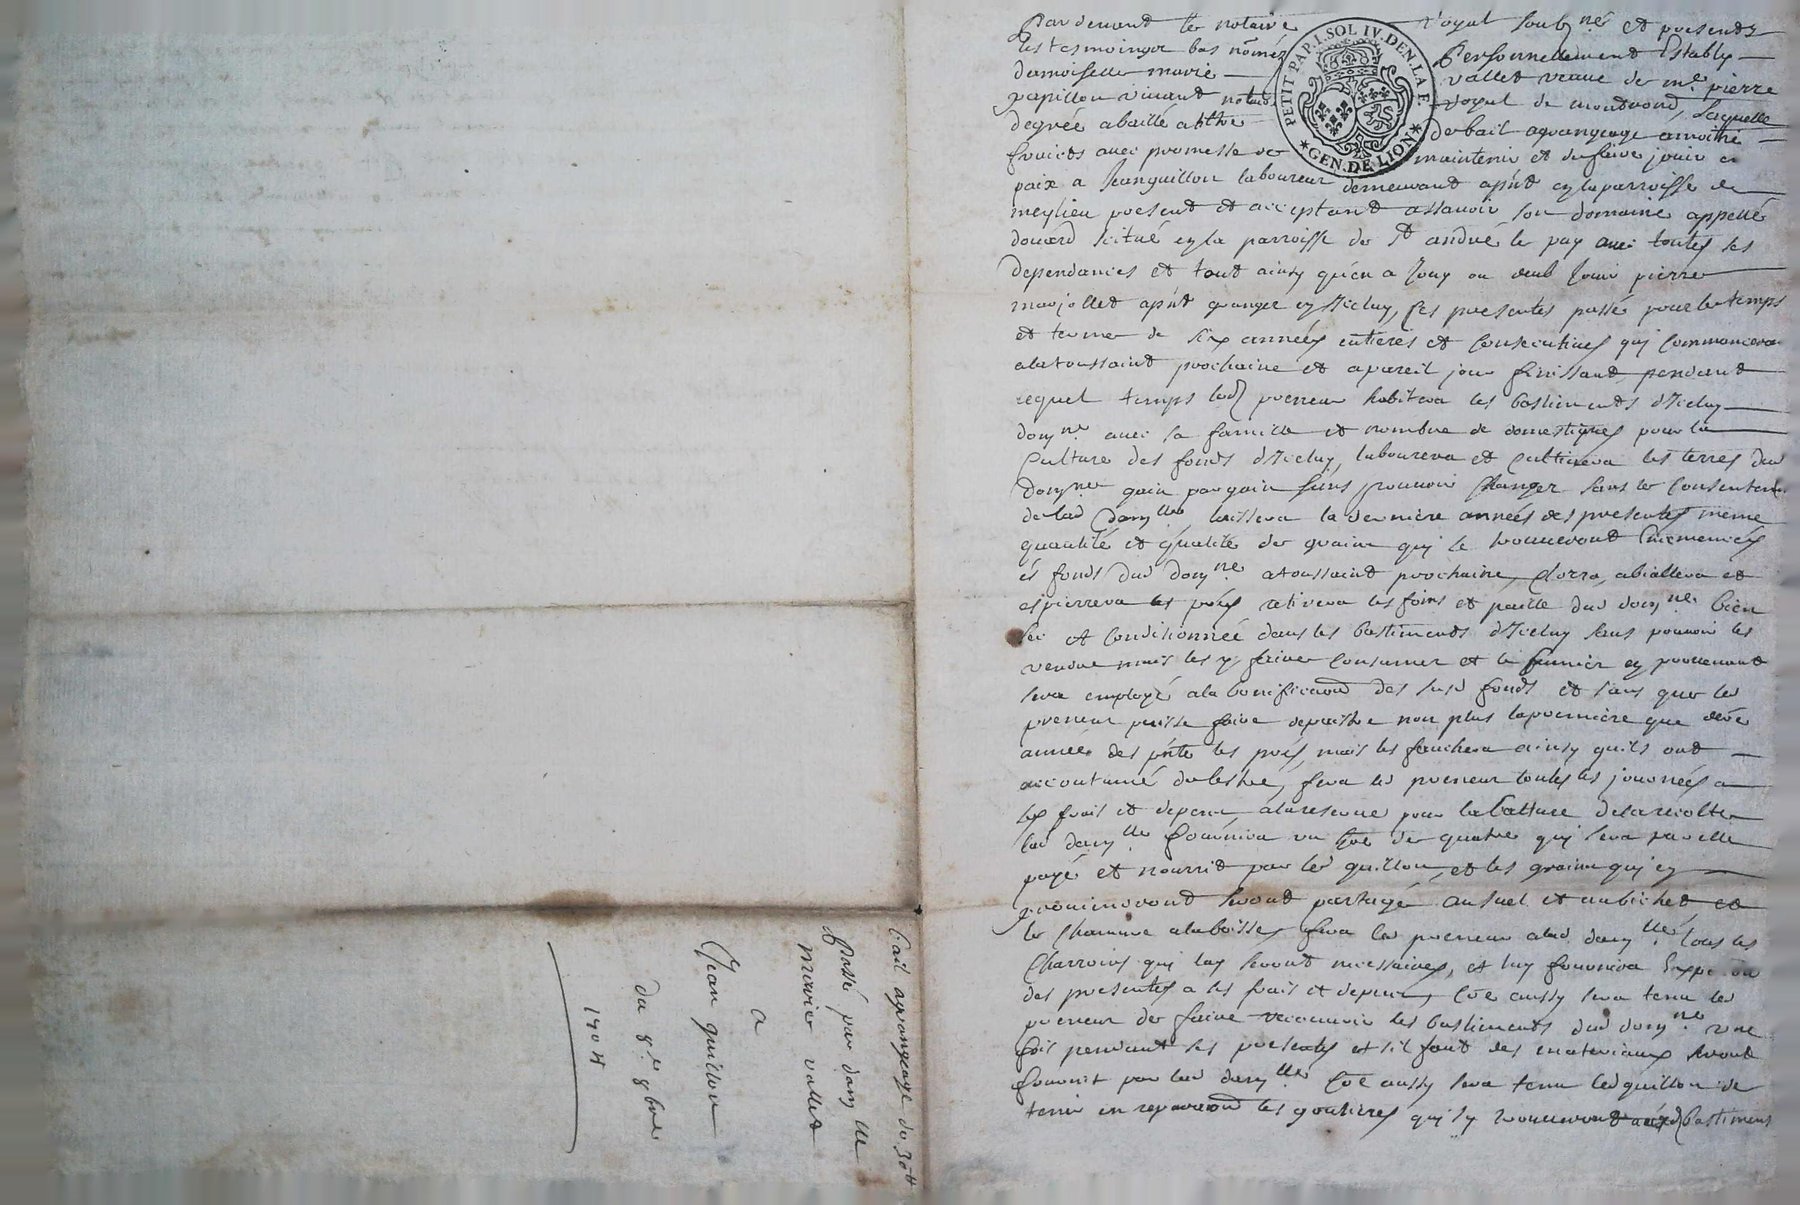 bail a grangeage de 30tt
Passé par damlle
Marie vallet
a
Jean guillon
du 8e 9bre
1704
PETIT PAP. 1. SOL IV. DEN. LA F.
GEN. DE LION
Par devant le notaire royal soubzné et presents
les tesmoings bas nōmés Personnellement Estably
damoiselle marie vallet veave de me. pierre
papillon vivant notaire royal de montrond, Laquelle
degrée a baillé a tiltre de bail a grangeage a moitié
fruicts avec promesse de maintenir et de faire jouir en
paix a Jean guillon laboureur demeurant apnt en la parroisse de
meylieu present et acceptant assavoir son domaine appellé
douard scitué en la parroisse de st andré le puy avec toutes ses
dependances et tout ainsy qu'en a Jouy ou deub Jouir pierre
marjollet apnt granger en Icelluy, Ces presentes passé pour le temps
et terme de six années entieres et Consecutives qui Commanceron
a la toussaint prochaine et a pareil jour finissant, pendant
lequel temps led preneur habitera les bastiments d'Iceluy
domne avec sa famille et nombre de domestiques pour la
Culture des fonds d'Iceluy, labourera et Cultivera les terres dud
domne gain par gain sans pouvoir Changer sans le Consentem
de lad damlle, laissera la derniere années des presentes meme
quantité et qualité de grains qui se trouveront Ensemencés
és fonds dud domne a toussaint prochaine, Clorra, abiallera et
espierrera les prés retirera les foins et paille dud domne bien
sec et Conditionnée dans les bastiments d'Iceluy sans pouvoir les
vendre mais les y faire Consumer et le fumier en provenant
sera employé a la bonification des susd fonds et sans que led
preneur puisse faire depaistre non plus la premiere que dere
année des pntes les prés, mais les fauchera ainsy quils ont
accoutumé de lestre, fera led preneur toutes les journées a
ses frais et depens, a la reserve pour la batture de la recolte
lad damlle fournira un hōe de quatre qui sera par elle
payé et nourrit par led guillon, et les grains qui en
proviendront seront partagé au suel et au bichet, et
le Chanvre a la boisse, fera led preneur a lad damlle tous les
Charrois qui luy seront necessaires, et luy fournira Expe don
des presentes a ses frais et depens, Cōe aussy sera tenu led
preneur de faire recouvrir les bastiments dud domne une
fois pendant ses presentes et s'il faut des materiaux seront
fournit par lad damlle Cōe aussy sera tenu led guillon de
tenir en reparation les goutieres qui sy trouveront auxd bastiments